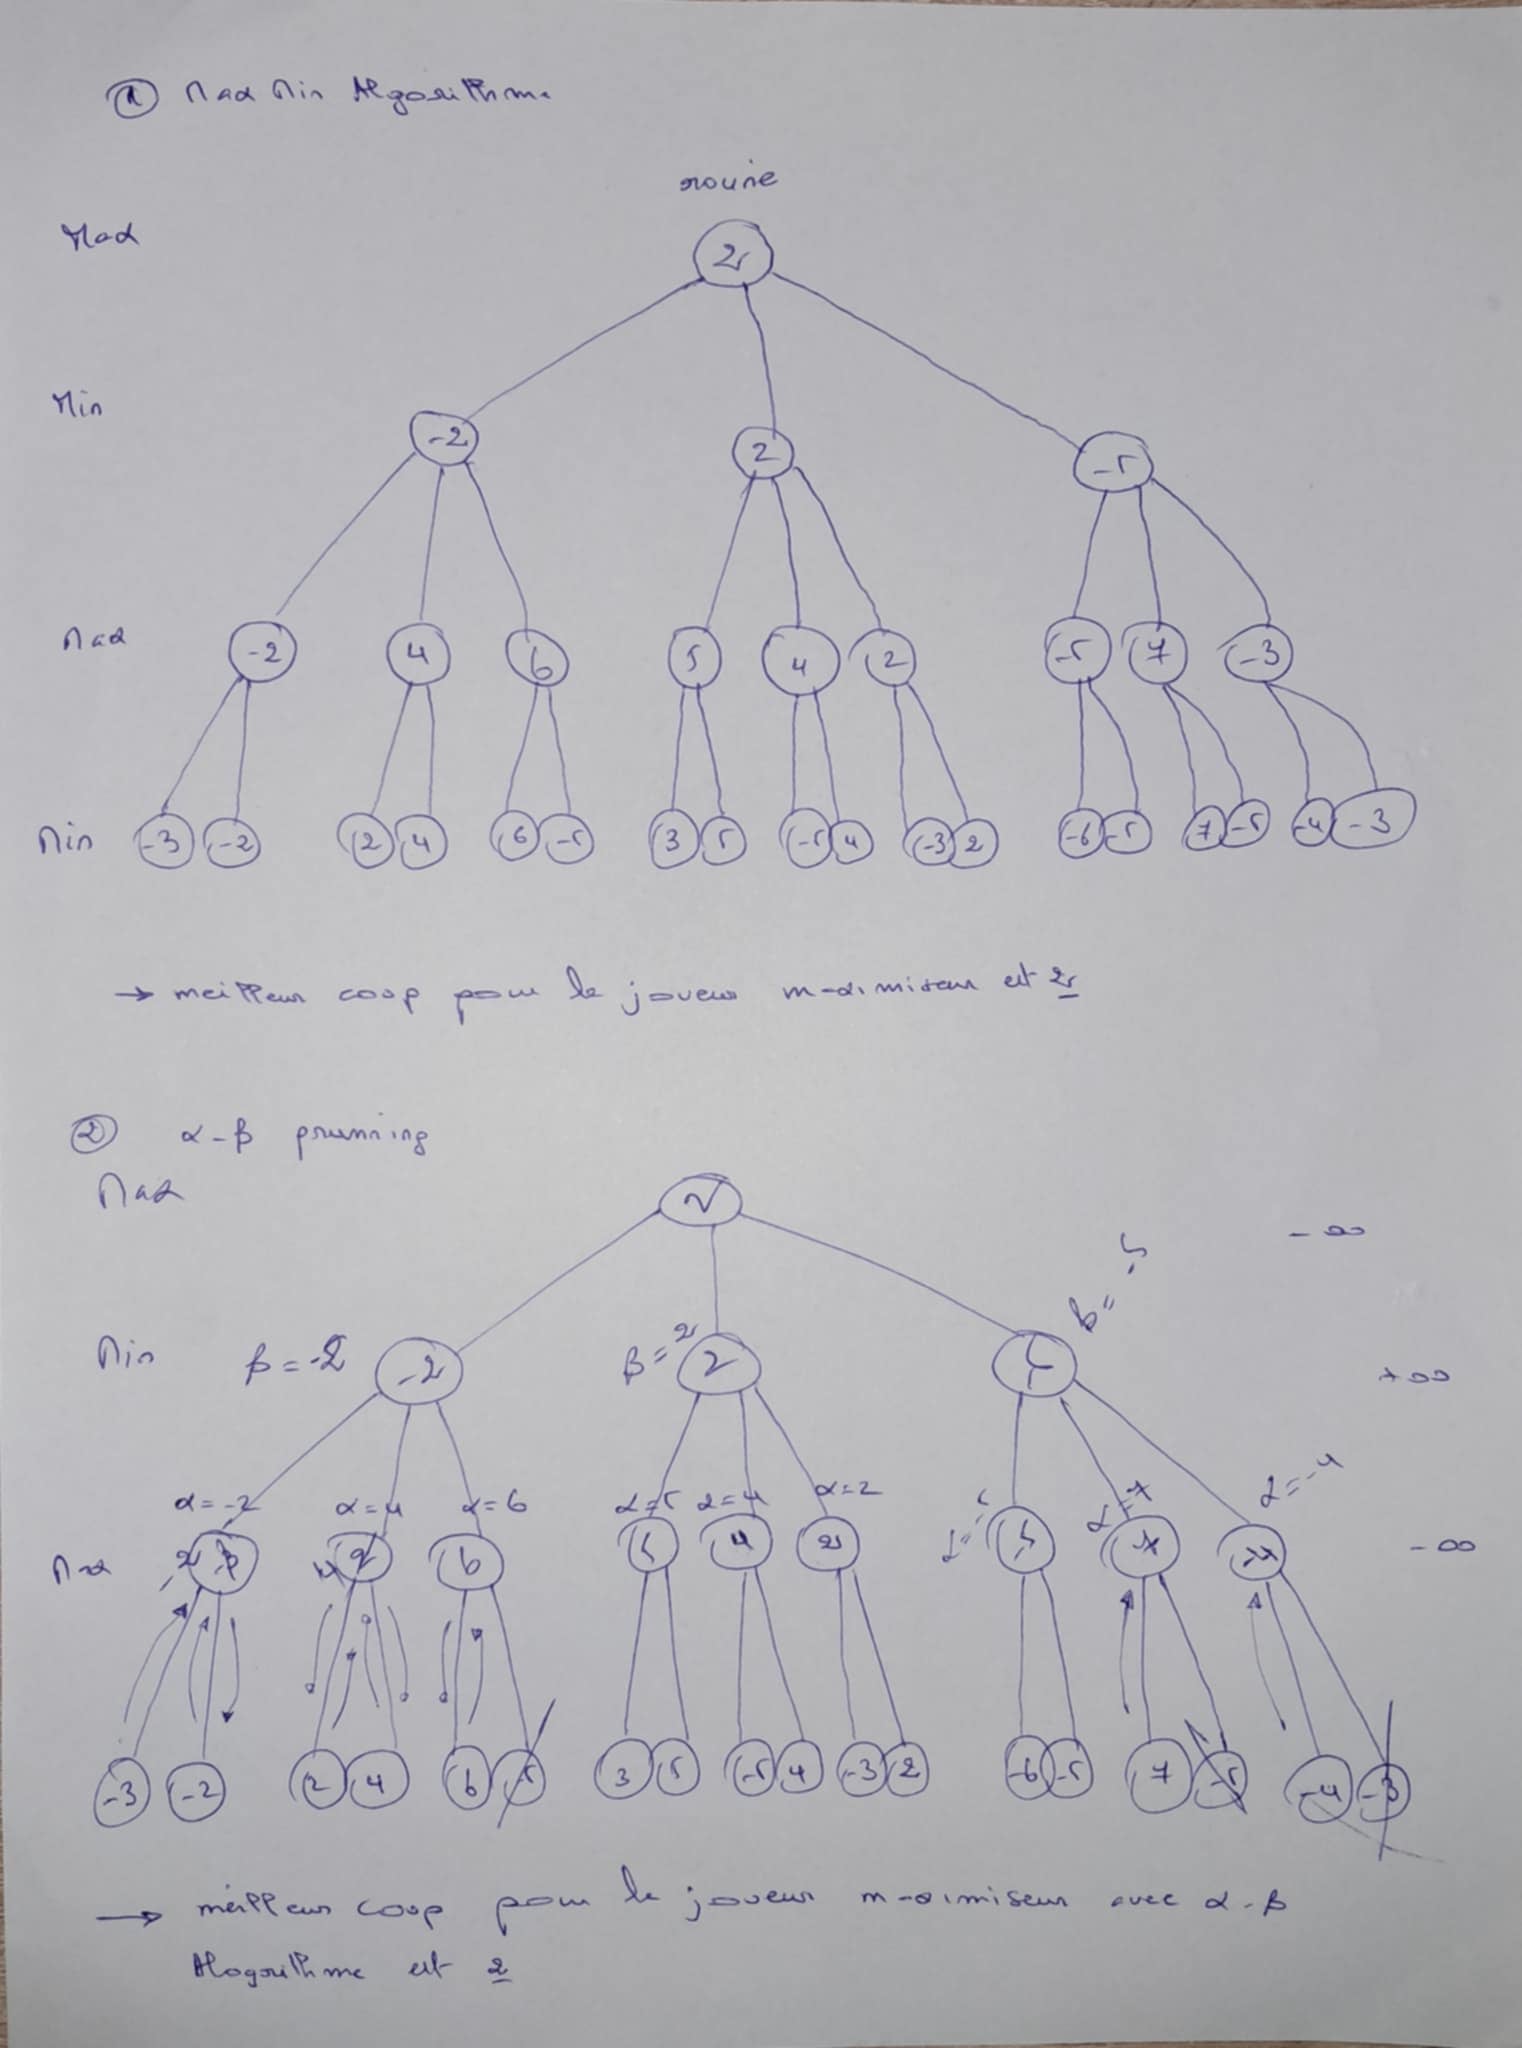 ① Max Min Algorithme
racine
Max 2
Min -2 2 -5
Max -2 4 6 5 4 2 -5 7 -3
Min -3 -2 2 4 6 -5 3 5 -5 4 -3 2 -6 -5 7 -5 -4 -3
→ meilleur coup pour le joueur maximiseur est 2
② α-β prunning
Max
2 -∞
β = -5
Min β = -2 -2 β = 2 2 +∞
α = -2 α = 4 α = 6 α = 5 α = 4 α = 2 α = 7 α = -4
Max -2 4 6 5 4 2 -5 -∞
-3 -2 2 4 6 -5 3 5 -5 4 -3 2 -6 -5 7 -5 -4 -3
→ meilleur coup pour le joueur maximiseur avec α-β
Alogorithme est 2